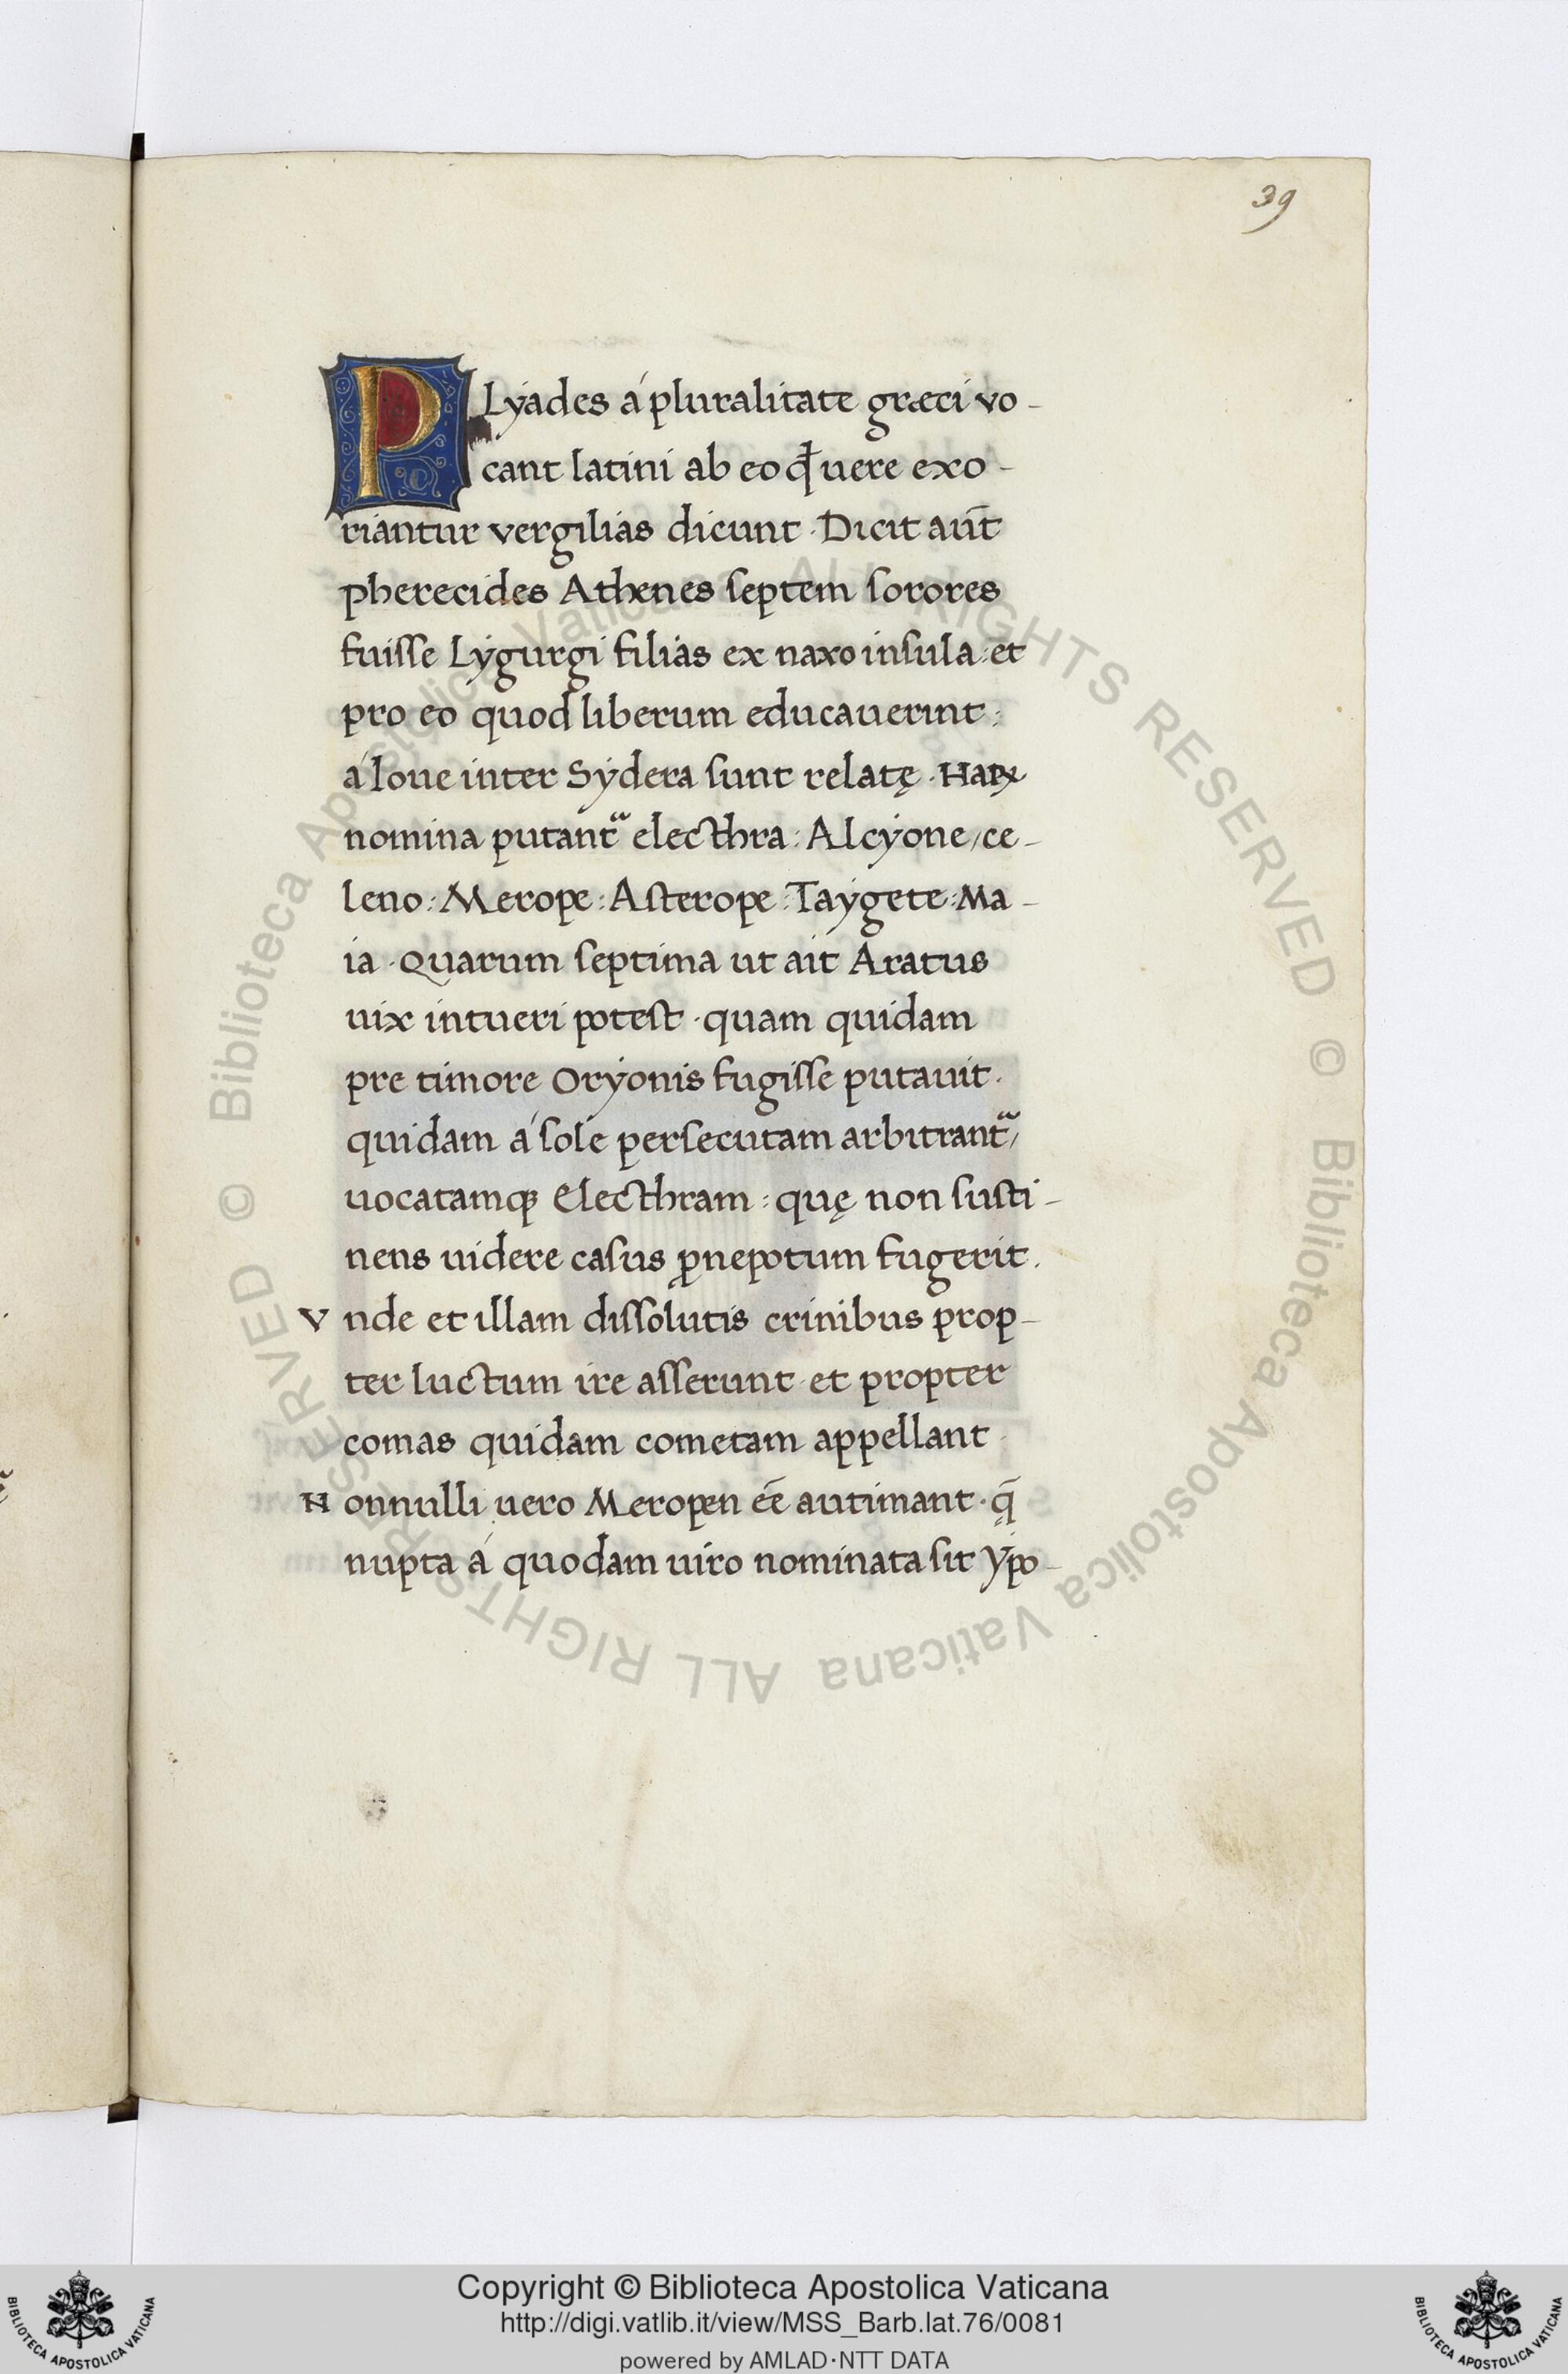 39
PLyades á pluralitate græci vo-
cant latini ab eo qđ uere exo-
riantur vergilias dicunt · Dicit aut̄
pherecides Athenes septem sorores
fuisse Lygurgi filias ex naxo insula : et
pro eo quod liberum educauerint :
á Ioue inter Sydera sunt relatę · Haꝝ
nomina putantᷓ electhra : Alcyone / ce-
leno : Merope : Asterope : Taygete : Ma-
ia · Quarum septima ut ait Aratus
uix intueri potest · quam quidam
pre timore Oryonis fugisse putauit ·
quidam á sole persecutam arbitrantᷓ /
uocatamqꝫ Electhram : quę non susti-
nens uidere casus ꝓnepotum fugerit .
Vnde et illam dissolutis crinibus prop-
ter luctum ire asserunt · et propter
comas quidam cometam appellant ·
Nonnulli uero Meropen eē autimant · q̨̄
nupta á quodam uiro nominata sit ypo-
© Biblioteca Apostolica Vaticana ALL RIGHTS RESERVED © Biblioteca Apostolica Vaticana ALL RIGHTS RESERVED
Copyright © Biblioteca Apostolica Vaticana
http://digi.vatlib.it/view/MSS_Barb.lat.76/0081
powered by AMLAD·NTT DATA
BIBLIOTECA APOSTOLICA VATICANA
BIBLIOTECA APOSTOLICA VATICANA